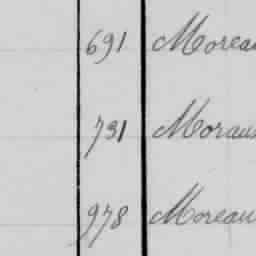 691 Moreau
731 Moraux
978 Moreau